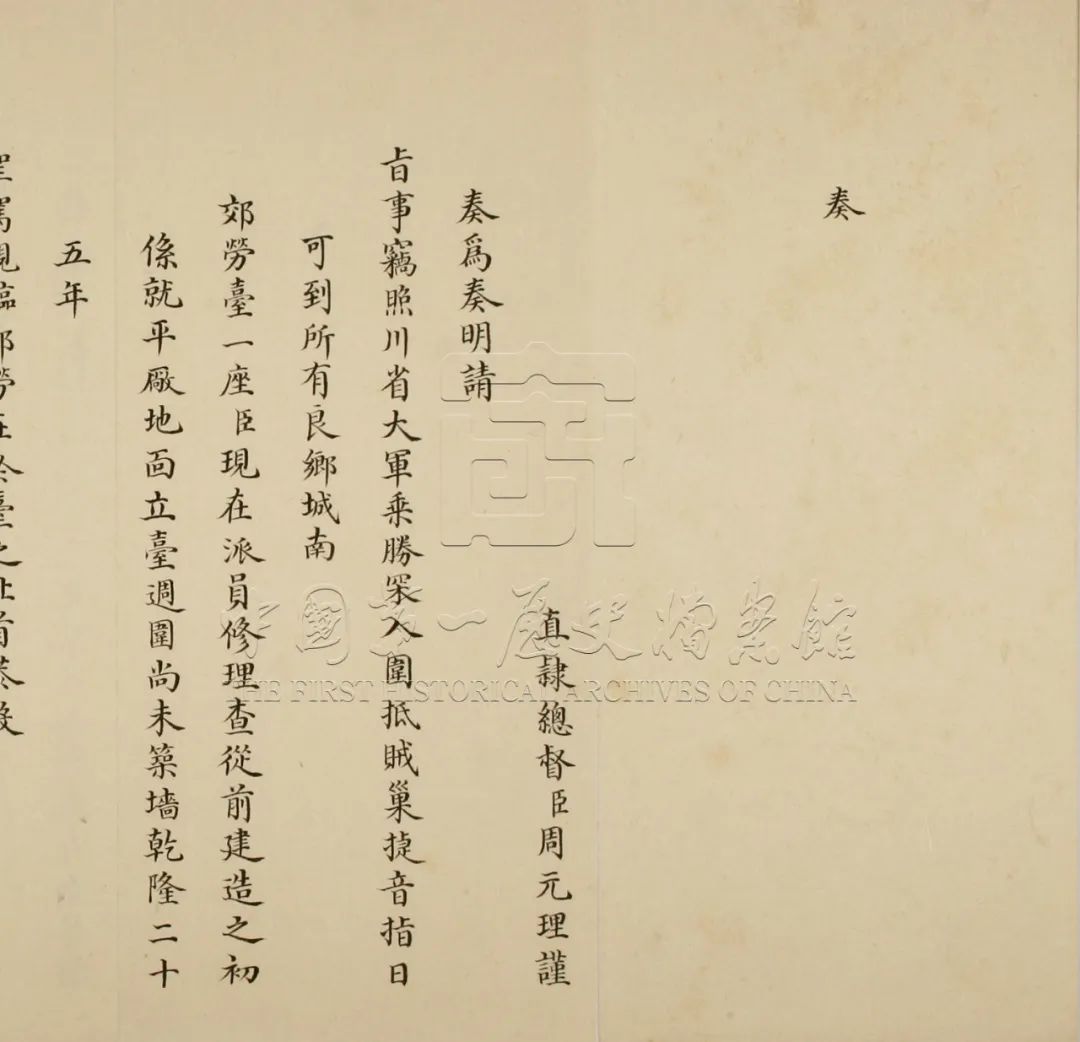 奏
直隸總督臣周元理謹
奏爲奏明請
旨事竊照川省大軍乗勝罙入圍抵賊巢捷音指日
可到所有良鄉城南
郊勞臺一座臣現在派員修理查從前建造之初
係就平厰地面立臺週圍尚未築墻乾隆二十
五年
聖駕親臨郊勞在於臺之
中國第一歷史檔案館
THE FIRST HISTORICAL ARCHIVES OF CHINA